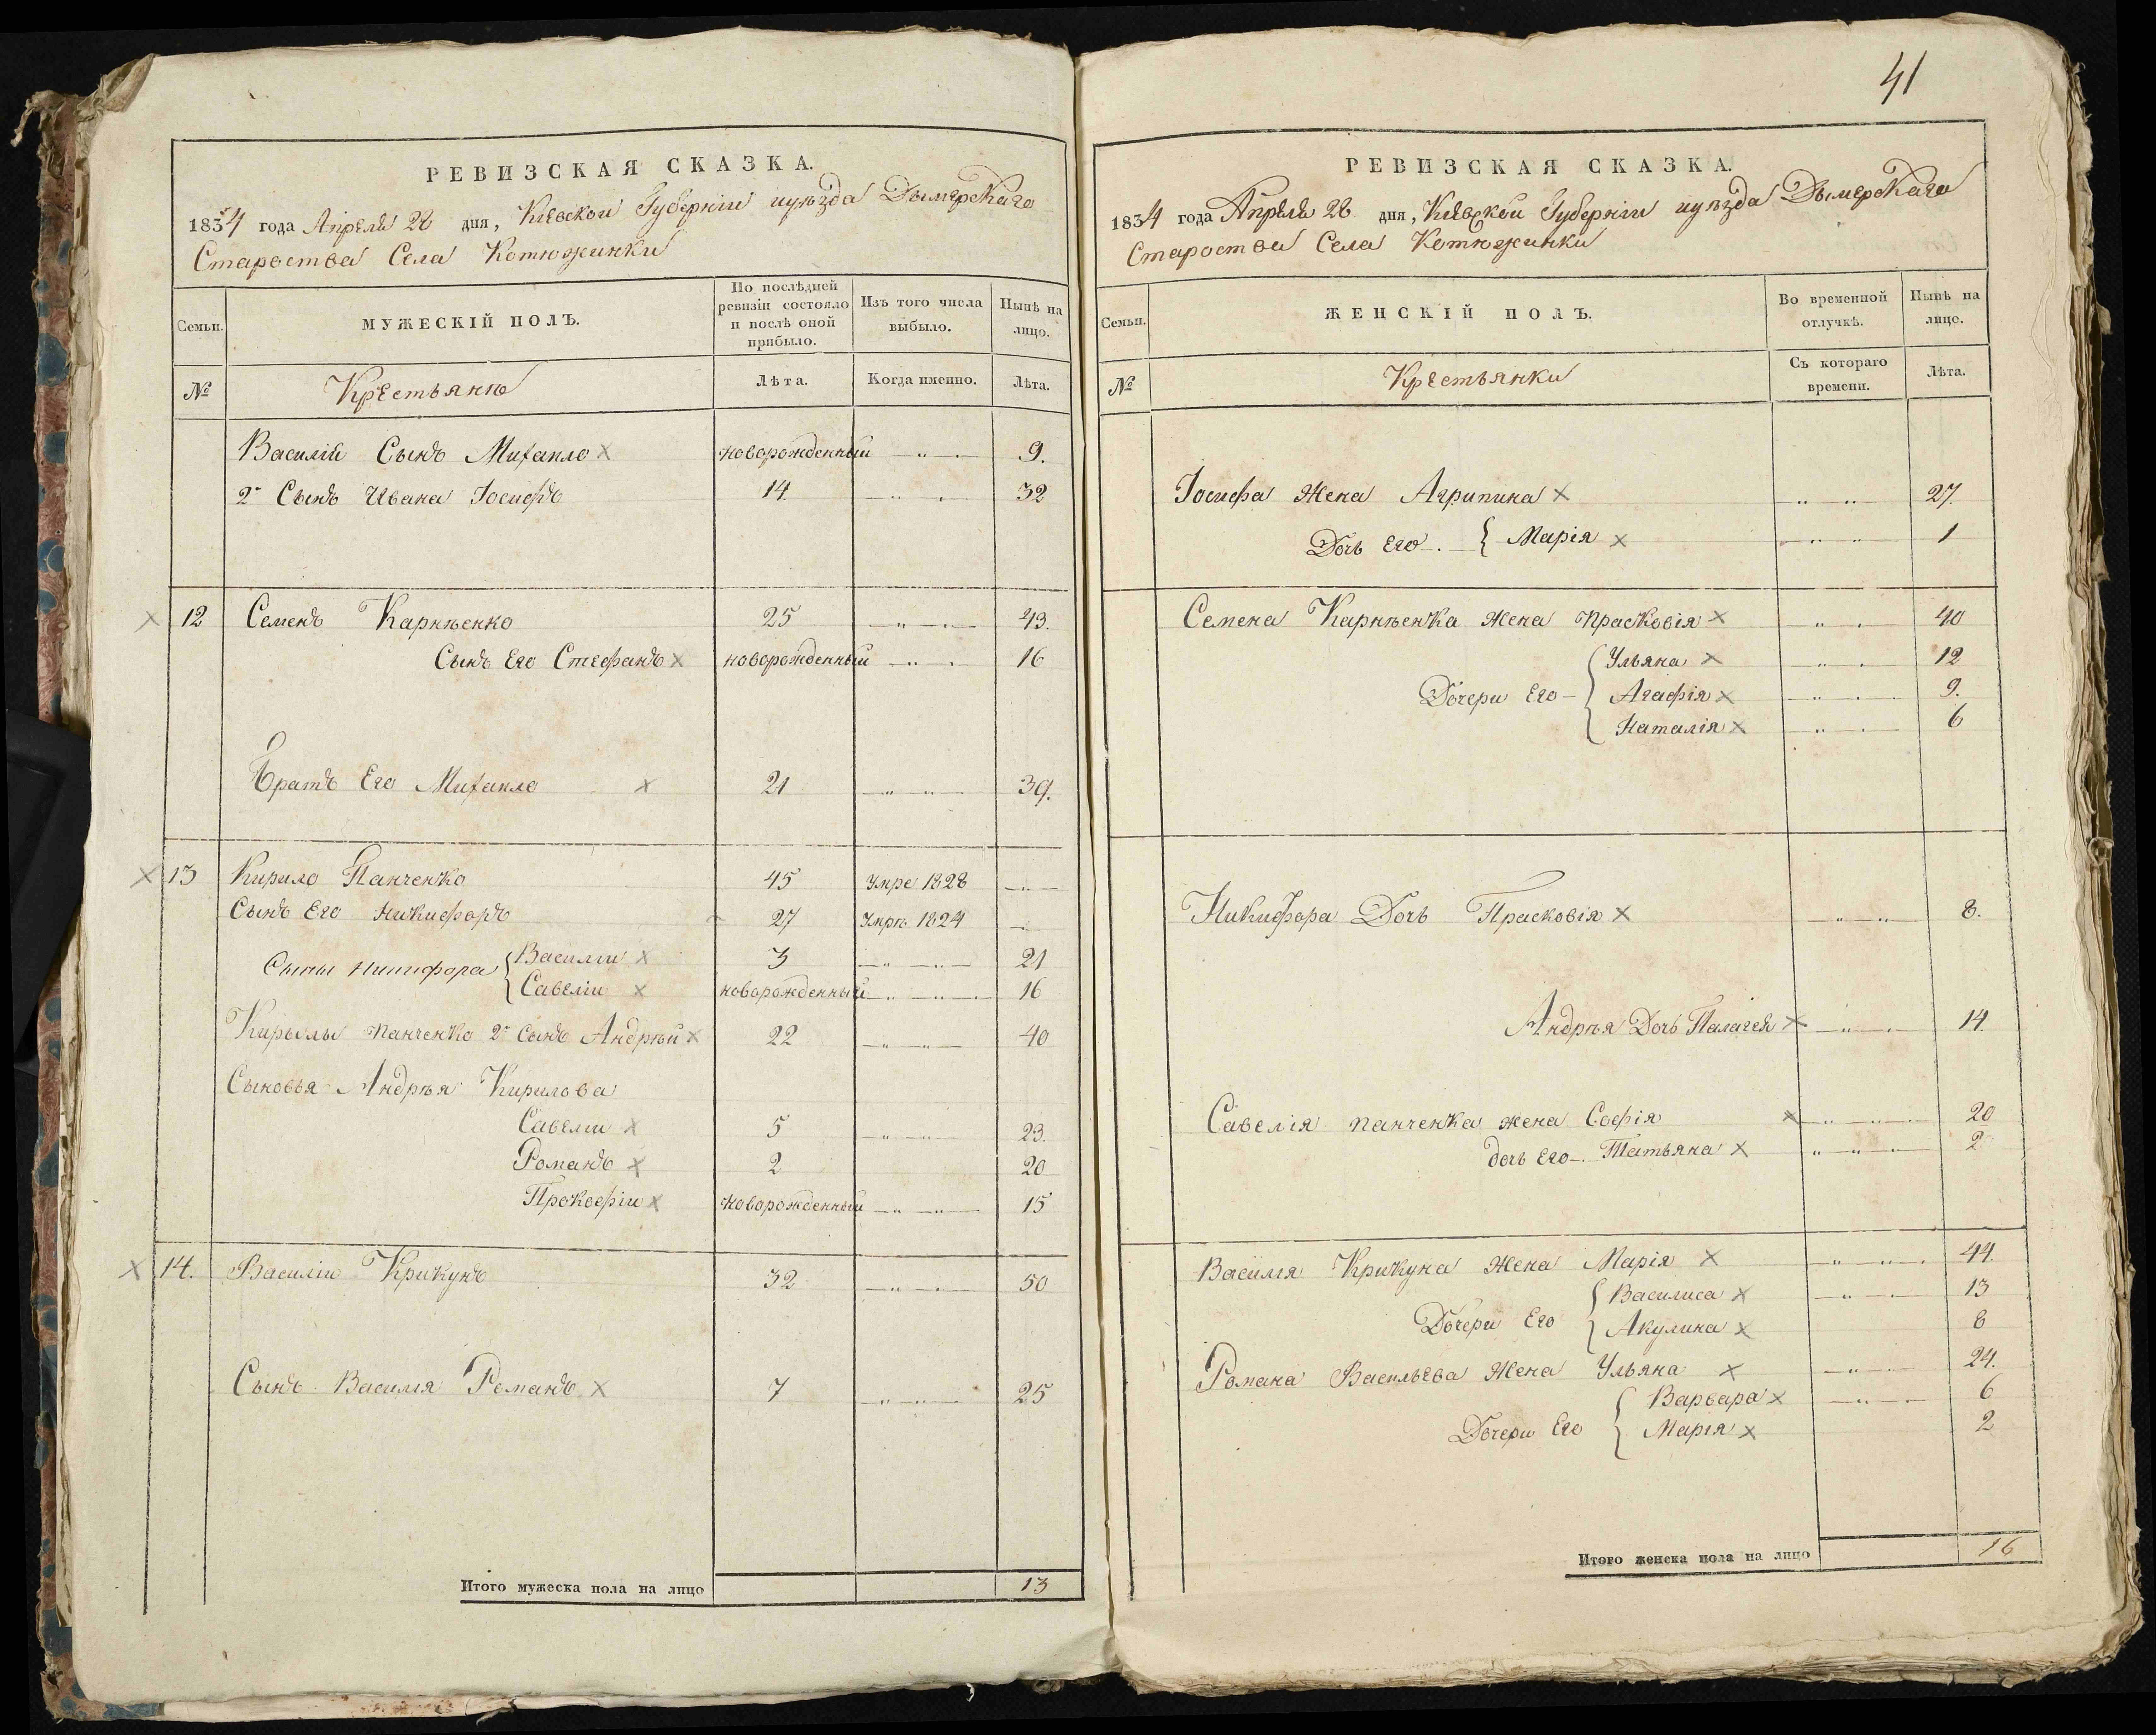 РЕВИЗСКАЯ СКАЗКА.
1834 года Апреля 28 дня, Киевской Губернiи иуѣзда Дымерскаго
Староства Села Котюжинки
Семьи.
МУЖЕСКIЙ ПОЛЪ.
По послѣдней ревизiи состояло и послѣ оной прибыло.
Изъ того числа выбыло.
Нынѣ на лицо.
№
Крестьянѣ
Лѣта.
Когда именно.
Лѣта.
Василiй Сынъ Михаило новорожденный 9.
2й Сынъ Ивана Iосифъ 14. 32
12 Семенъ Карнѣенко 25 43.
Сынъ Его Стефанъ новорожденный 16
Братъ Его Михаило 21 39.
13 Кирило Панченко 45 Умре 1828
Сынъ Его Никифоръ 27 Умрѣ 1824
Сыны Никифора { Василiи 3 21
Савелiи новорожденный 16
Кирылы панченко 2й сынъ Андрѣй 22 40
Сыновья Андрѣя Кирилова
Савелiи 5 23.
Романъ 2 20
Прокофiи новорожденный 15
14. Василiи Крикунъ 32 50
Сынъ Василiя Романъ 7 25
Итого мужеска пола на лицо 13
41
РЕВИЗСКАЯ СКАЗКА.
1834 года Апреля 28 дня, Киевской Губернiи иуѣзда Дымерскаго
Староства Села Котюжинки
Семьи.
ЖЕНСКIЙ ПОЛЪ.
Во временной отлучкѣ.
Нынѣ на лицо.
№
Крестьянки
Съ котораго времени.
Лѣта.
Iосифа Жена Агрипина 27.
Дочь Его { Марiя 1
Семена Карнѣенка Жена Прасковiя 40
{ Ульяна 12
Дочери Его Агафiя 9.
Наталiя 6
Никифора Дочь Прасковiя 8.
Андрѣя Дочь Палагея 14.
Савелiя панченка жена Софiя 20
дочь Его Татьяна 2
Василiя Крикуна Жена Марiя 44.
Дочери Его { Василиса 13
Акулина 8
Романа Васильева Жена Ульяна 24.
{ Варвара 6
Дочери Его Марiя 2
Итого женска пола на лицо 16